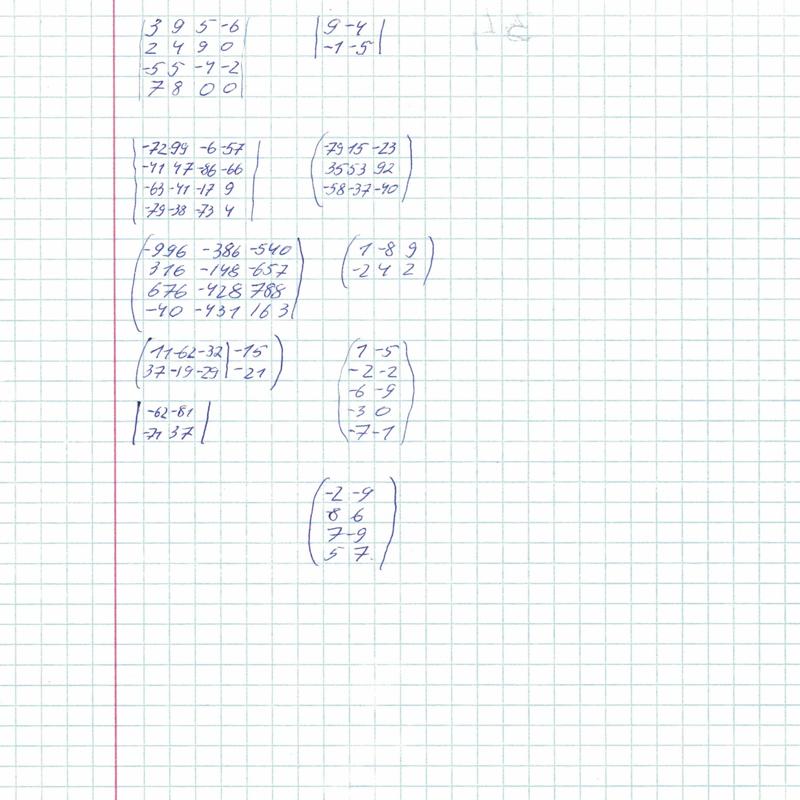 |3 9 5 -6|
|2 4 9 0|
|-5 5 -1 -2|
|7 8 0 0|
|9 -4|
|-1 -5|
|-72 99 -6 -57|
|-41 47 -86 -66|
|-63 -41 -17 9|
|-79 -38 -73 4|
(-79 15 -23)
(35 53 92)
(-58 -37 -40)
(-996 -386 -540)
(316 -148 -657)
(676 -428 788)
(-40 -431 163)
(1 -8 9)
(-2 4 2)
(11 -62 -32 | -15)
(37 -19 -29 | -21)
(1 -5)
(-2 -2)
(-6 -9)
(-3 0)
(-7 -1)
|-62 -81|
|-71 37|
(-2 -9)
(8 6)
(7 -9)
(5 7)